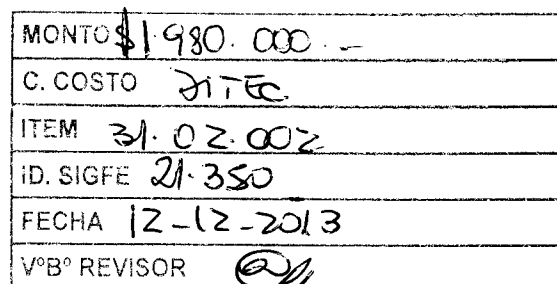 MONTO $1.980.000.-
C. COSTO DITEC
ITEM 31.02.002
ID. SIGFE 21.350
FECHA 12-12-2013
VºBº REVISOR